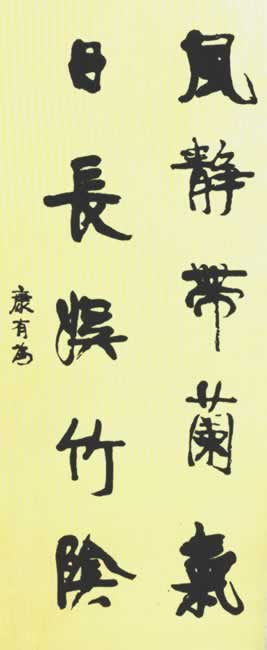 風静帶蘭氣
日長娛竹陰
康有為